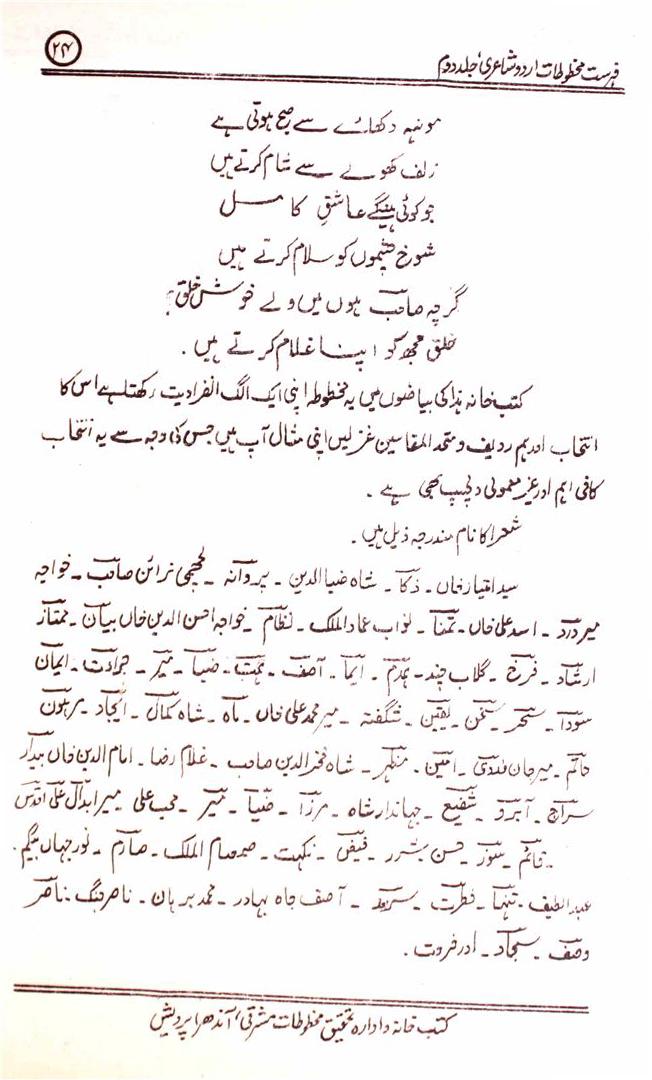 ۲۴
فہرست مخطوطات اردو شاعری، جلد دوم
مونہہ دکھائے سے صبح ہوتی ہے
زلف کھولے سے شام کرتے ہیں
جو کوئی ہینگے عاشقِ کامل
شوخ چشموں کو سلام کرتے ہیں
گرچہ صاحب ہوں میں ولے خوش خلق؟
خلق مجھ کو اپنا غلام کرتے ہیں .
کتب خانہ ہذا کی بیاضوں میں یہ مخطوطہ اپنی ایک الگ انفرادیت رکھتا ہے اس کا
انتخاب اور ہم ردیف و متحد المقاسین غزلیں اپنی مثال آپ ہیں جس کی وجہ سے یہ انتخاب
کافی اہم اور غیر معمولی دلچسپ بھی ہے .
شعرا کا نام مندرجہ ذیل ہیں .
سید امتیاز خاں ۔ ذکا ۔ شاہ ضیا الدین ۔ پروانہ ۔ لچھمی نرائن صاحب ۔ خواجہ
میر درد ۔ اسد علی خاں ۔ تمنا ۔ نواب عماد الملک ۔ نظام ۔ خواجہ احسن الدین خاں بیان ۔ ممتاز
ارشاد ۔ فرخ ۔ گلاب چند ۔ ہمدم ۔ ایما ۔ آصف ۔ ہمت ۔ ضیا ۔ میر ۔ جرادت ۔ ایمان
سودا ۔ سحر ۔ سخن ۔ یقین ۔ شگفتہ ۔ میر محمد علی خاں ۔ ماہ ۔ شاہ کمال ۔ ایجاد ۔ مرہون
حاتم ۔ میر جان ۔ امین ۔ مظہر ۔ شاہ فخر الدین صاحب ۔ غلام رضا ۔ امام الدین خاں بیدار
سراج ۔ آبرو ۔ شفیع ۔ جہاندار شاہ ۔ مرزا ۔ ضیا ۔ میر ۔ محب علی ۔ میر ابدال علی اقدس
۔ قائم ۔ سوز ۔ حسن شرر ۔ فیض ۔ نکہت ۔ صمصام الملک ۔ صارم ۔ نور جہاں بیگم .
عبد الطیف ۔ تنہا ۔ فطرت ۔ ۔ آصف جاہ بہادر ۔ محمد برہان ۔ ناصر جنگ ناصر
وصف ۔ سجاد ۔ اور فروت .
کتب خانہ و ادارہ تحقیق مخطوطات مشرقی، آندھرا پردیش